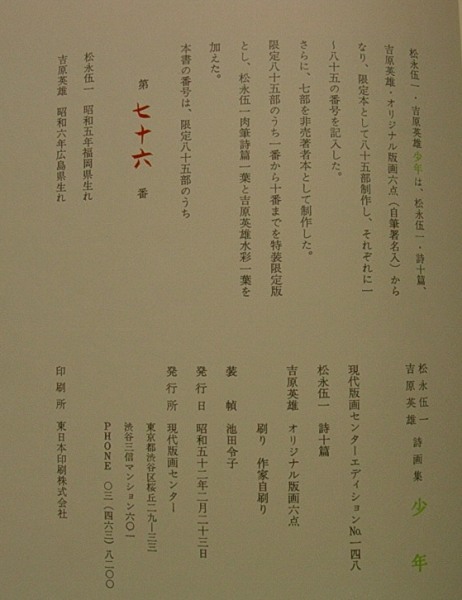 松永伍一・吉原英雄少年は、松永伍一・詩十篇、
吉原英雄・オリジナル版画六点（自筆署名入）から
なり、限定本として八十五部制作し、それぞれに一
〜八十五の番号を記入した。
さらに、七部を非売著者本として制作した。
限定八十五部のうち一番から十番までを特装限定版
とし、松永伍一肉筆詩篇一葉と吉原英雄水彩一葉を
加えた。
本書の番号は、限定八十五部のうち
第 七十六 番
松永伍一 昭和五年福岡県生れ
吉原英雄 昭和六年広島県生れ
松永伍一
吉原英雄 詩画集 少年
現代版画センターエディションNo.一四八
松永伍一 詩十篇
吉原英雄 オリジナル版画六点
刷り 作家自刷り
装幀 池田令子
発行日 昭和五十二年二月二十三日
発行所 現代版画センター
東京都渋谷区桜丘二九ー三三
渋谷三信マンション六〇一
PHONE 〇三（四六三）八二〇〇
印刷所 東日本印刷株式会社